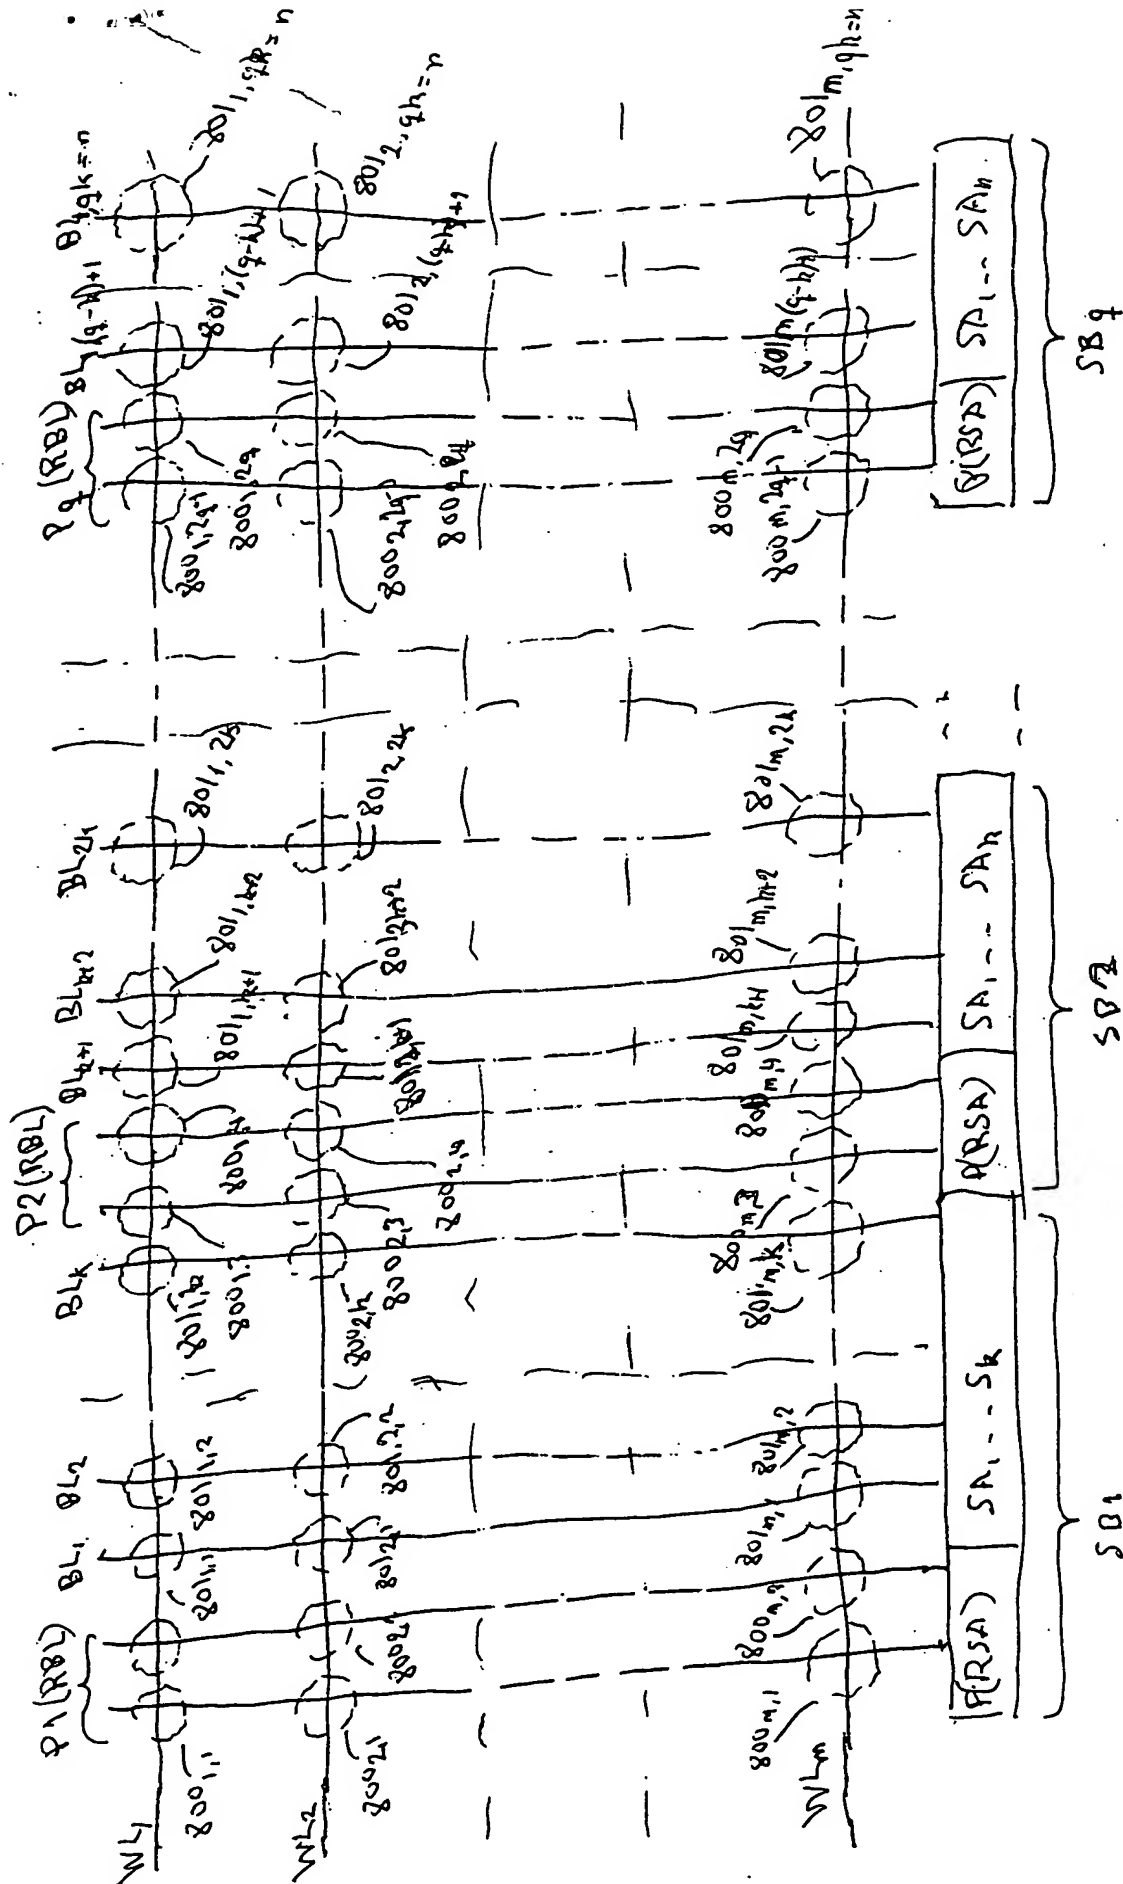 P1(RBL) BL1 BL2 BLk P2(RBL) BLk+1 BLk+2 BL2k Pq(RBL) BL(q-k)+1 BLqk=n
WL1
8001,1 8011,1 8011,2 8011,k 8001,3 8001,4 8011,k+1 8011,k+2 8011,2k 8001,2q-1 8001,2q 8011,(q-k)+1 8011,qk=n
WL2
8002,1 8002,2 8012,1 8012,2 8002,k 8002,3 8002,4 8012,k+1 8012,k+2 8012,2k 8002,2q-1 8002,2q 8012,(q-k)+1 8012,qk=n
WLm
800m,1 800m,2 801m,1 801m,2 801m,k 800m,3 801m,4 801m,k+1 801m,k+2 801m,2k 800m,2q-1 800m,2q 801m(q-k)+1 801m,qk=n
P(RSA) SA1 -- Sk P(RSA) SA1 --- SAk P(RSA) SA1 -- SAn
SB1 SB2 SBq